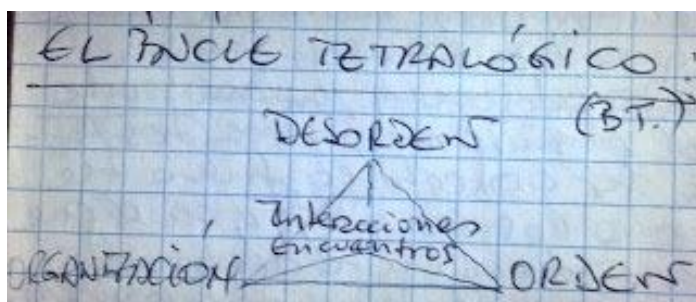 EL BUCLE TETRALÓGICO:
(BT.)
DESORDEN
Interacciones
encuentros
ORGANIZACIÓN ORDEN